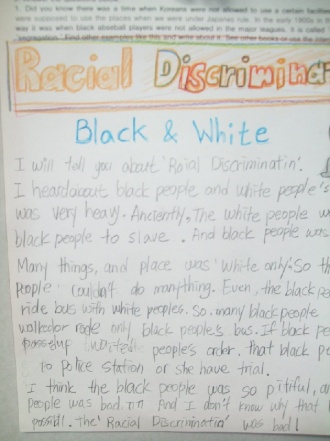 1. Did you know there was a time when Koreans were not allowed to use a certain facilities
were supposed to use the places when we were under Japanese rule. In the early 1900s in
way it was when black baseball players were not allowed in the major leagues. It is called
segregation. Find other examples like this and write about it. See other books or use the
Racial Discrimina
Black & White
I will tell you about 'Raial Discriminatin'.
I heard about black people and white people's
was very heavy. Anciently, The white people
black people to slave . And black people was
Many things, and place was 'White only'. So th
people couldn't do manything. Even, the black pe
ride bus with white peoples. So, many black people
only black people's bus. If black pe
people's order, that black pe
to police station or she have trial.
I think the black people was so pitiful, an
people was bad. ㅠㅠ And I don't know why that
the 'Racial Discriminatin' was bad!